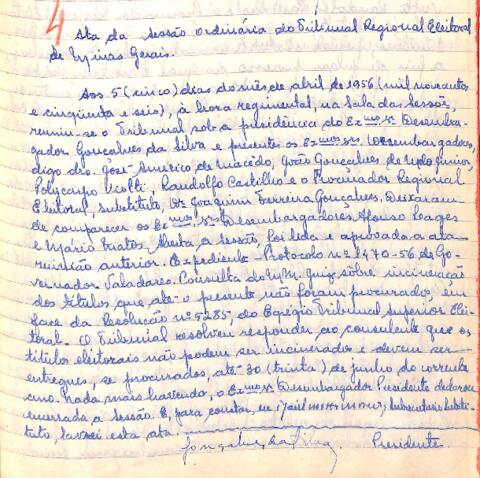 4
Ata da sessão ordinária do Tribunal Regional Eleitoral
de Minas Gerais.
Aos 5 (cinco) dias do mês de abril de 1956 (mil novecentos
e cinqüenta e seis), à hora regimental, na Sala das Sessões,
reuniu-se o Tribunal sob a presidência do Exmo. Sr. Desembar-
gador Gonçalves da Silva e presentes os Exmos. Srs. Desembargadores,
digo drs. José Américo de Macêdo, João Gonçalves de Melo Júnior,
Policarpo Randolfo Castilho e o Procurador Regional
Eleitoral, substituto, Dr. Joaquim Ferreira Gonçalves. Deixaram
de comparecer os Exmos. Srs. Desembargadores Afonso Lages
e Mário Matos. Aberta a sessão, foi lida e aprovada a ata
reunião anterior. Expediente - Protocolo nº 1470-56 de Go-
vernador Valadares. Consulta do MM. Juiz sôbre incineração
dos títulos que até o presente não foram procurados, em
face da Resolução nº 5285, do Egrégio Tribunal Superior Elei-
toral. O Tribunal resolveu responder ao consulente que os
títulos eleitorais não podem ser incinerados e devem ser
entregues, se procurados, até 30 (trinta) de junho do corrente
ano. Nada mais havendo, o Exmo. Sr. Desembargador Presidente declarou
encerrada a sessão. E, para constar, eu secretário substi-
tuto, lavrei esta ata.
Gonçalves da Silva Presidente.